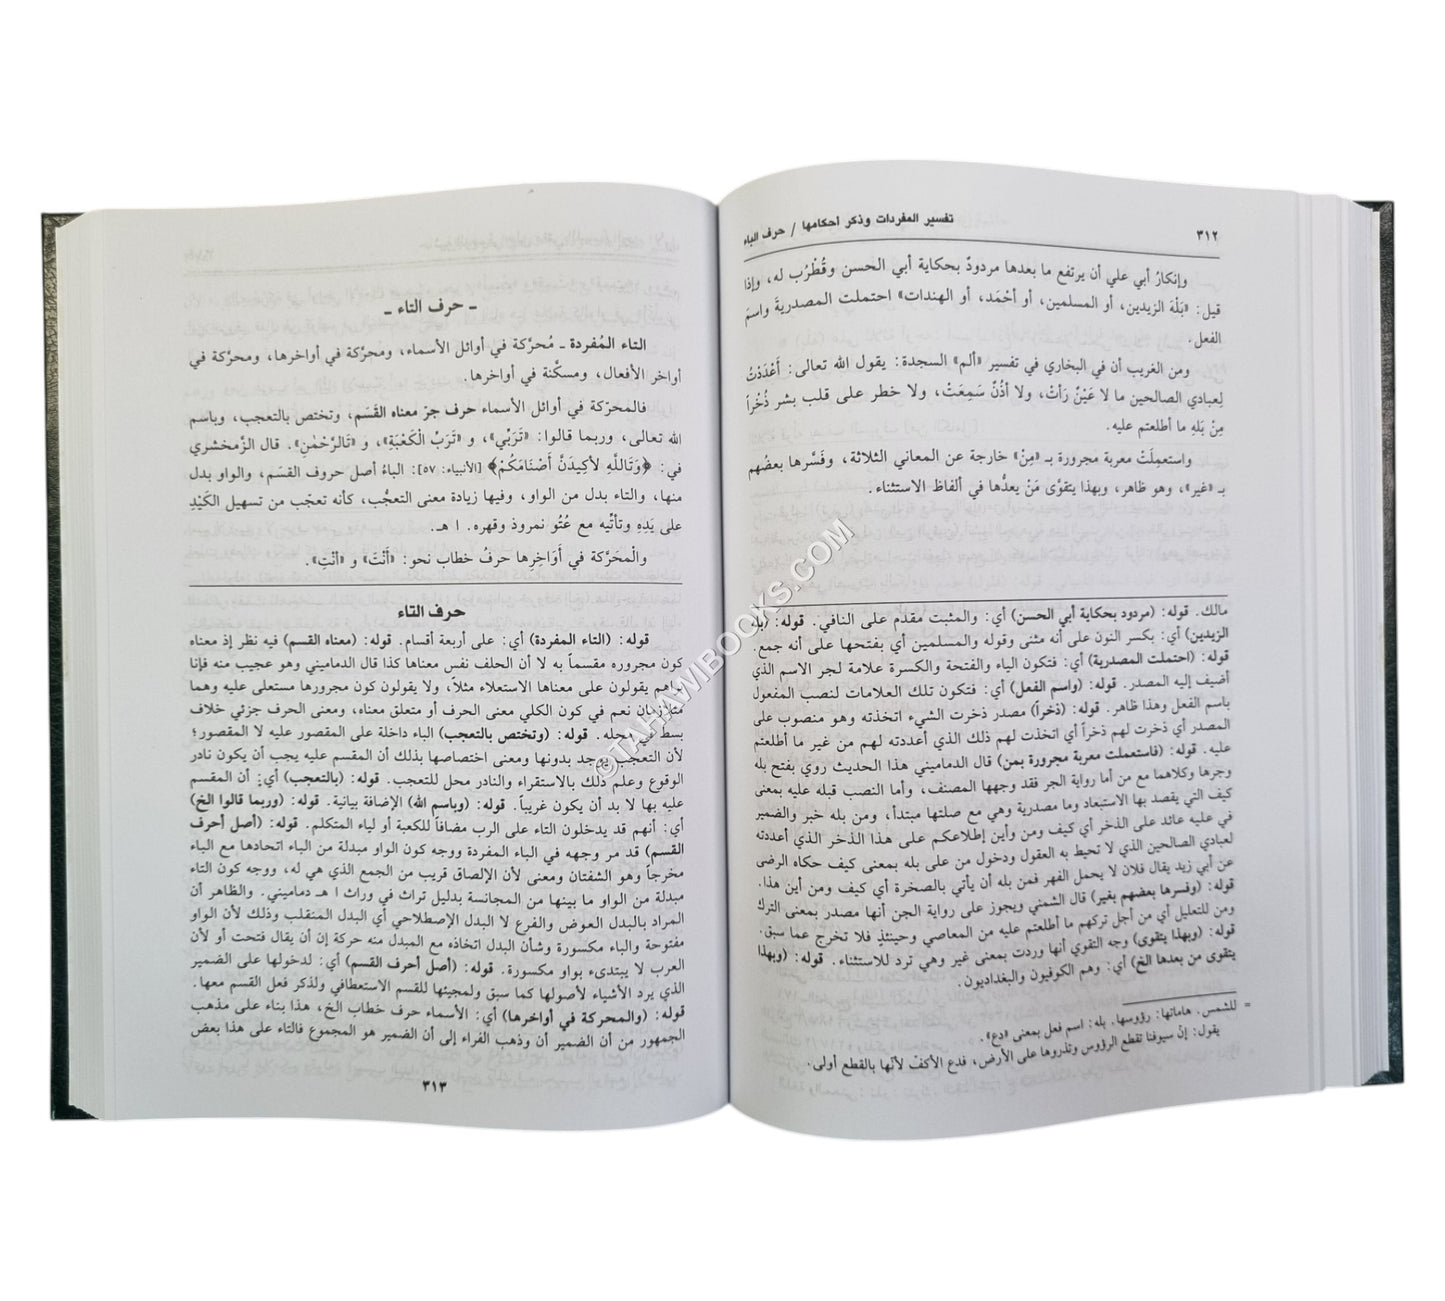 ٣١٢
تفسير المفردات وذكر أحكامها / حرف الباء
وإنكارُ أبي علي أن يرتفع ما بعدها مردودٌ بحكاية أبي الحسن وقُطْرُب له، وإذا
قيل: «بَلْهَ الزيدين، أو المسلمين، أو أحْمَد، أو الهندات» احتملت المصدريةَ واسمَ
الفعل.
ومن الغريب أن في البخاري في تفسير «ألم» السجدة: يقول الله تعالى: أَعْدَدْتُ
لِعبادي الصالحين ما لا عَيْنٌ رَأتْ، ولا أذُنٌ سَمِعَتْ، ولا خطر على قلب بشر ذُخْراً
مِنْ بَلهِ ما أطلعتم عليه.
واستعمِلَتْ معربة مجرورة بـ «مِنْ» خارجة عن المعاني الثلاثة، وفَسَّرها بعضُهم
بـ «غير»، وهو ظاهر، وبهذا يتقوَّى مَنْ يعدُّها في ألفاظ الاستثناء.
مالك. قوله: (مردود بحكاية أبي الحسن) أي: والمثبت مقدم على النافي. قوله: (بله
الزيدين) أي: بكسر النون على أنه مثنى وقوله والمسلمين أي بفتحها على أنه جمع.
قوله: (احتملت المصدرية) أي: فتكون الياء والفتحة والكسرة علامة لجر الاسم الذي
أضيف إليه المصدر. قوله: (واسم الفعل) أي: فتكون تلك العلامات لنصب المفعول
باسم الفعل وهذا ظاهر. قوله: (ذخراً) مصدر ذخرت الشيء اتخذته وهو منصوب على
المصدر أي ذخرت لهم ذخراً أي اتخذت لهم ذلك الذي أعددته لهم من غير ما أطلعتم
عليه. قوله: (فاستعملت معربة مجرورة بمن) قال الدماميني هذا الحديث روي بفتح بله
وجرها وكلاهما مع من أما رواية الجر فقد وجهها المصنف، وأما النصب قبله عليه بمعنى
كيف التي يقصد بها الاستبعاد وما مصدرية وهي مع صلتها مبتدأ، ومن بله خبر والضمير
في عليه عائد على الذخر أي كيف ومن وأين إطلاعكم على هذا الذخر الذي أعددته
لعبادي الصالحين الذي لا تحيط به العقول ودخول من على بله بمعنى كيف حكاه الرضى
عن أبي زيد يقال فلان لا يحمل الفهر فمن بله أن يأتي بالصخرة أي كيف ومن أين هذا.
قوله: (وفسرها بعضهم بغير) قال الشمني ويجوز على رواية الجن أنها مصدر بمعنى الترك
ومن للتعليل أي من أجل تركهم ما أطلعتم عليه من المعاصي وحينئذٍ فلا تخرج عما سبق.
قوله: (وبهذا يتقوى) وجه التقوي أنها وردت بمعنى غير وهي ترد للاستثناء. قوله: (وبهذا
يتقوى من بعدها الخ) أي: وهم الكوفيون والبغداديون.
= للشمس. هاماتها: رؤوسها. بله: اسم فعل بمعنى «دع».
يقول: إنّ سيوفنا تقطع الرؤوس وتذروها على الأرض، فدع الأكفّ لأنّها بالقطع أولى.
ـ حرف التاء ـ
التاء المُفردة ـ مُحرَّكة في أوائل الأسماء، ومحرَّكة في أواخرها، ومحرَّكة في
أواخر الأفعال، ومسكَّنة في أواخرها.
فالمحرّكة في أوائل الأسماء حرف جرّ معناه القَسَم، وتختص بالتعجب، وباسم
الله تعالى، وربما قالوا: «تَرَبِّي»، و «تَرَبِّ الْكَعْبَةِ»، و «تَالرَّحْمٰنِ». قال الزَّمخشري
في: ﴿وَتَاللَّهِ لأكِيدَنَّ أَصْنَامَكُمْ﴾ [الأنبياء: ٥٧]: الباءُ أصل حروف القسَم، والواو بدل
منها، والتاء بدل من الواو، وفيها زيادة معنى التعجُّب، كأنه تعجّب من تسهيل الكَيْدِ
على يَدِهِ وتأتّيه مع عُتُو نمروذ وقهره. ا هـ.
والْمحَرَّكة في أَوَاخِرِها حَرفُ خطاب نحو: «أَنْتَ» و «أنتِ».
حرف التاء
قوله: (التاء المفردة) أي: على أربعة أقسام. قوله: (معناه القسم) فيه نظر إذ معناه
كون مجروره مقسماً به لا أن الحلف نفس معناها كذا قال الدماميني وهو عجيب منه فإنا
نراهم يقولون على معناها الاستعلاء مثلاً، ولا يقولون كون مجرورها مستعلى عليه وهما
مثلازمان نعم في كون الكلي معنى الحرف أو متعلق معناه، ومعنى الحرف جزئي خلاف
بسط في محله. قوله: (وتختص بالتعجب) الباء داخلة على المقصور عليه لا المقصور؛
لأن التعجب يوجد بدونها ومعنى اختصاصها بذلك أن المقسم عليه يجب أن يكون نادر
الوقوع وعلم ذلك بالاستقراء والنادر محل للتعجب. قوله: (بالتعجب) أي: أن المقسم
عليه بها لا بد أن يكون غريباً. قوله: (وباسم الله) الإضافة بيانية. قوله: (وربما قالوا الخ)
أي: أنهم قد يدخلون التاء على الرب مضافاً للكعبة أو لياء المتكلم. قوله: (أصل أحرف
القسم) قد مر وجهه في الباء المفردة ووجه كون الواو مبدلة من الباء اتحادها مع الباء
مخرجاً وهو الشفتان ومعنى لأن الإلصاق قريب من الجمع الذي هي له، ووجه كون التاء
مبدلة من الواو ما بينها من المجانسة بدليل تراث في وراث ا هـ دماميني. والظاهر أن
المراد بالبدل العوض والفرع لا البدل الإصطلاحي أي البدل المنقلب وذلك لأن الواو
مفتوحة والباء مكسورة وشأن البدل اتخاذه مع المبدل منه حركة إن أن يقال فتحت أو لأن
العرب لا يبتدىء بواو مكسورة. قوله: (أصل أحرف القسم) أي: لدخولها على الضمير
الذي يرد الأشياء لأصولها كما سبق ولمجيئها للقسم الاستعطافي ولذكر فعل القسم معها.
قوله: (والمحركة في أواخرها) أي: الأسماء حرف خطاب الخ، هذا بناء على مذهب
الجمهور من أن الضمير أن وذهب الفراء إلى أن الضمير هو المجموع فالتاء على هذا بعض
٣١٣
©TAHAWIBOOKS.COM